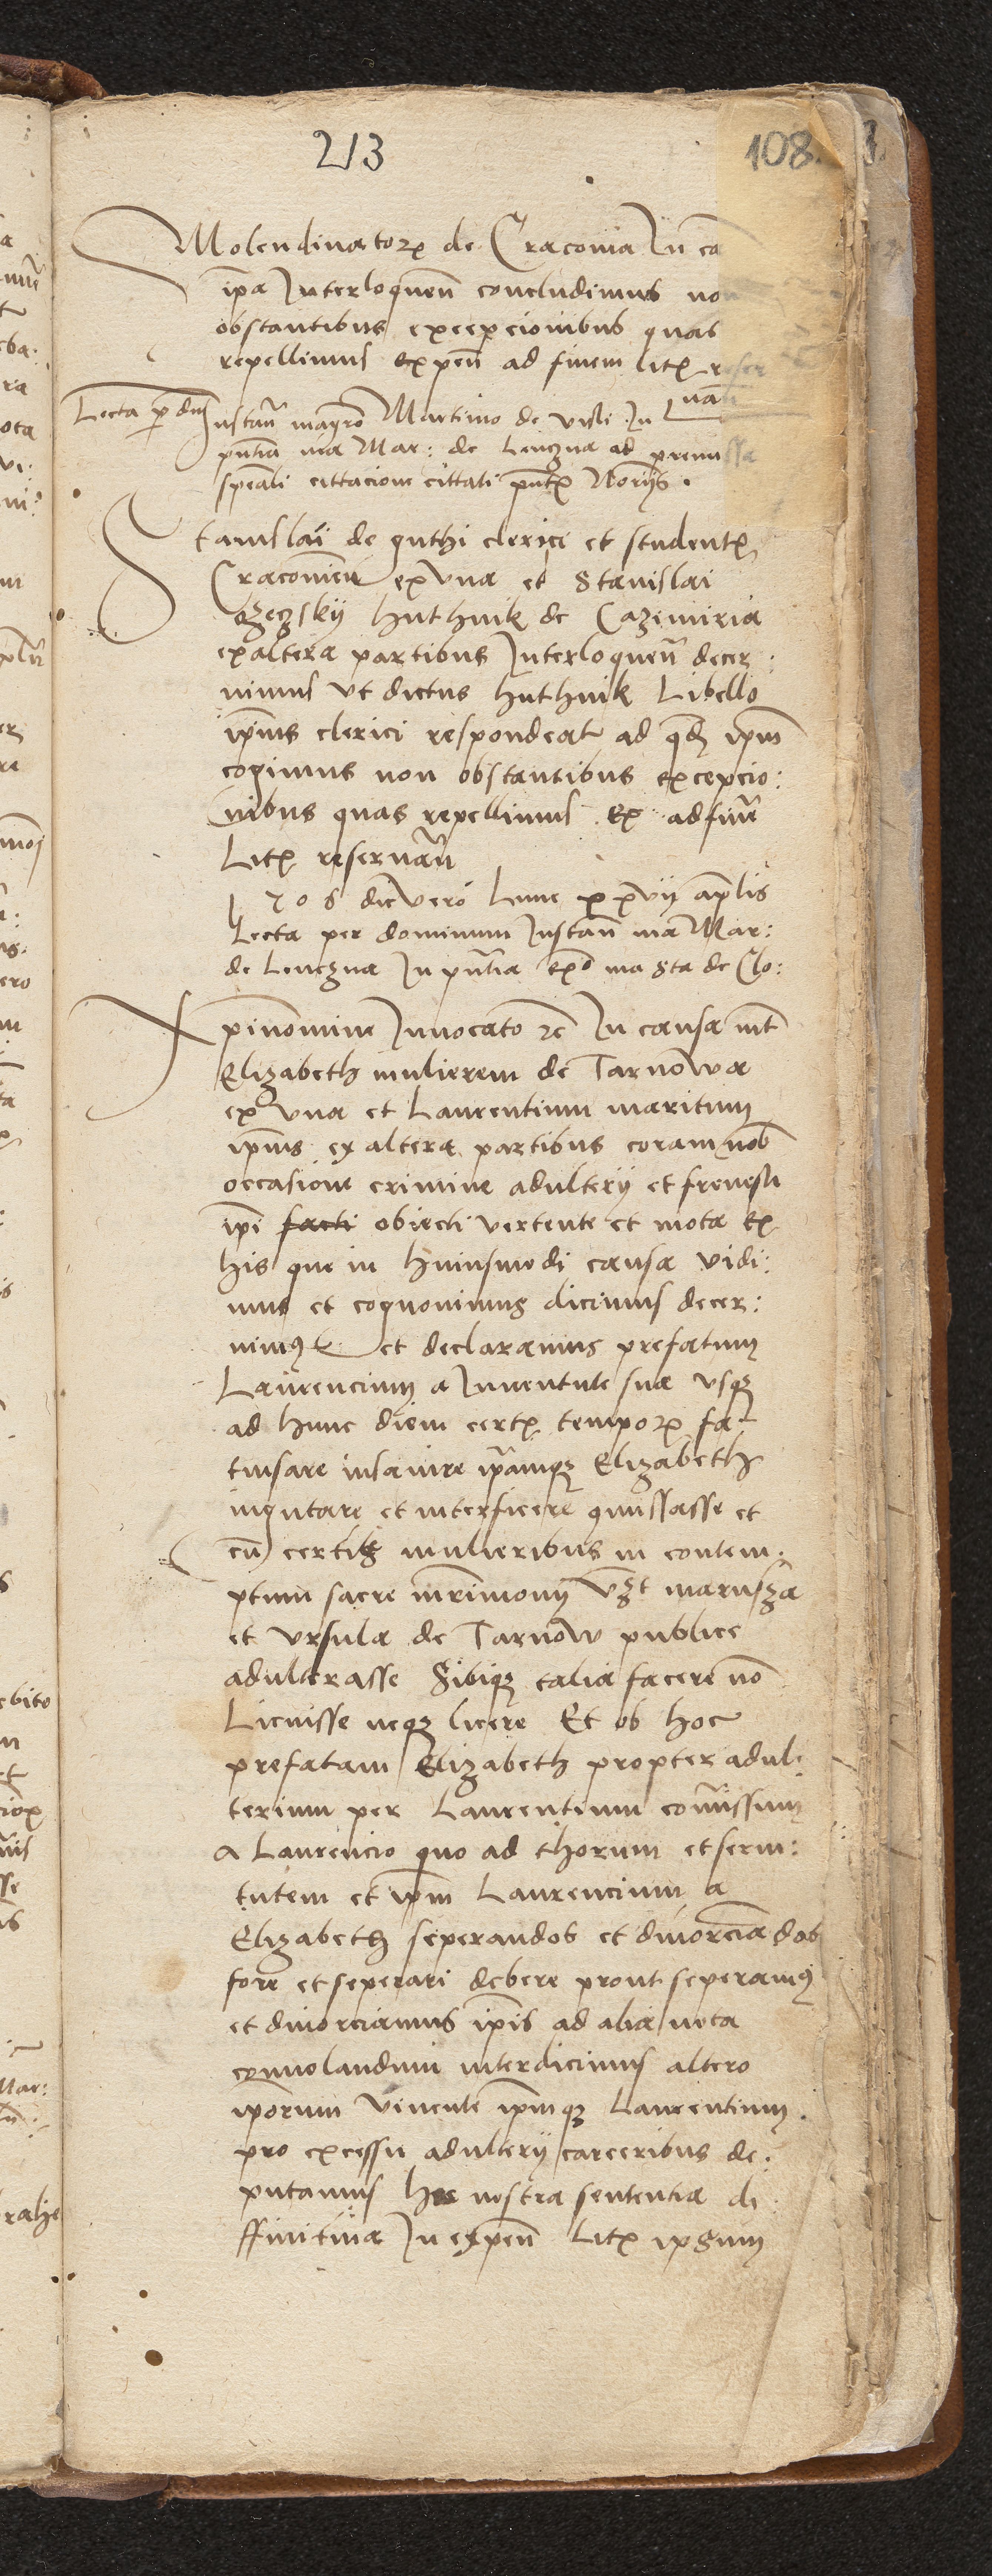 213
108.
Molendinatorꝝ de Cracovia In ca
ip̄a Interloquen̄ concludimus no
obstantibus excepcionibus quas
repellimus Expen̄ ad finem litꝭ reser
uan̄
Lecta p̱ dn̄
Instan̄ magr̄o Martino de visli In
pn̄tia ma Mar: de Lenczna ad premissa
spēali cittacione cittati pn̄tꝭ Nōrijs.
Stanislai de guthi clerici et studentꝭ
Cracovien̄ ex vna et Stanislai
huthnik de Cazimiria
ex altera partibus Interloquen̄ decer:
nimus vt dictus huthnik Libello
ip̄ius clerici respondeat ad qd̄ ip̄m
cogimus non obstantibus excepcio:
nibus quas repellimus Ex ad fin̄e
Litꝭ reseruan̄
1506 die vero Lune xxvij ap̄lis
Lecta per dominum Instan̄ ma Mar:
de Lenczna In pn̄tia exᵒ ma Sta de Clo:
Xpi nomine Innocato ⁊c̄ In causa int̄
Elizabeth mulierem de Tarnowa
ex vna et Laurentium maritum
ip̄ius ex altera partibus coram nob̄
occasione crimine adulterij et frenesu
ip̄i facti obiecti vertente et mota Ex
his que in huiusmodi causa vidi:
mus et cognouimus dicimus decer:
nimꝰ et declaramus prefatum
Laurencium a Iuuentute sua vsqꝫ
ad hunc diem certꝭ temporꝭ fa-
tusare insanire ip̄amqꝫ Elizabeth
iugutare et interficere conassasse et
cū certis mulieribus in contem:
ptum sacre mr̄imonij vꝫt maruscha
et vrsula de Tarnow publice
adulterasse Sibiqꝫ talia facere nō
Licuisse neqꝫ licere Et ob hoc
prefatam Elizabeth propter adul:
terium per Laurentium com̄issum
a Laurencio quo ad thorum et serui:
tutem et ip̄m Laurencium a
Elizabeth seperandos et diuorciādos
fore et seperari debere prout seperamꝰ
et diuorciamus ip̄is ad alia vota
conuolandum interdicimus altero
ip̄orum viuente ip̄mqꝫ Laurentium
pro excessu adulterij carceribus de:
putamus hac nostra sententia di
ffinitiua In expen̄ Litꝭ ipsum